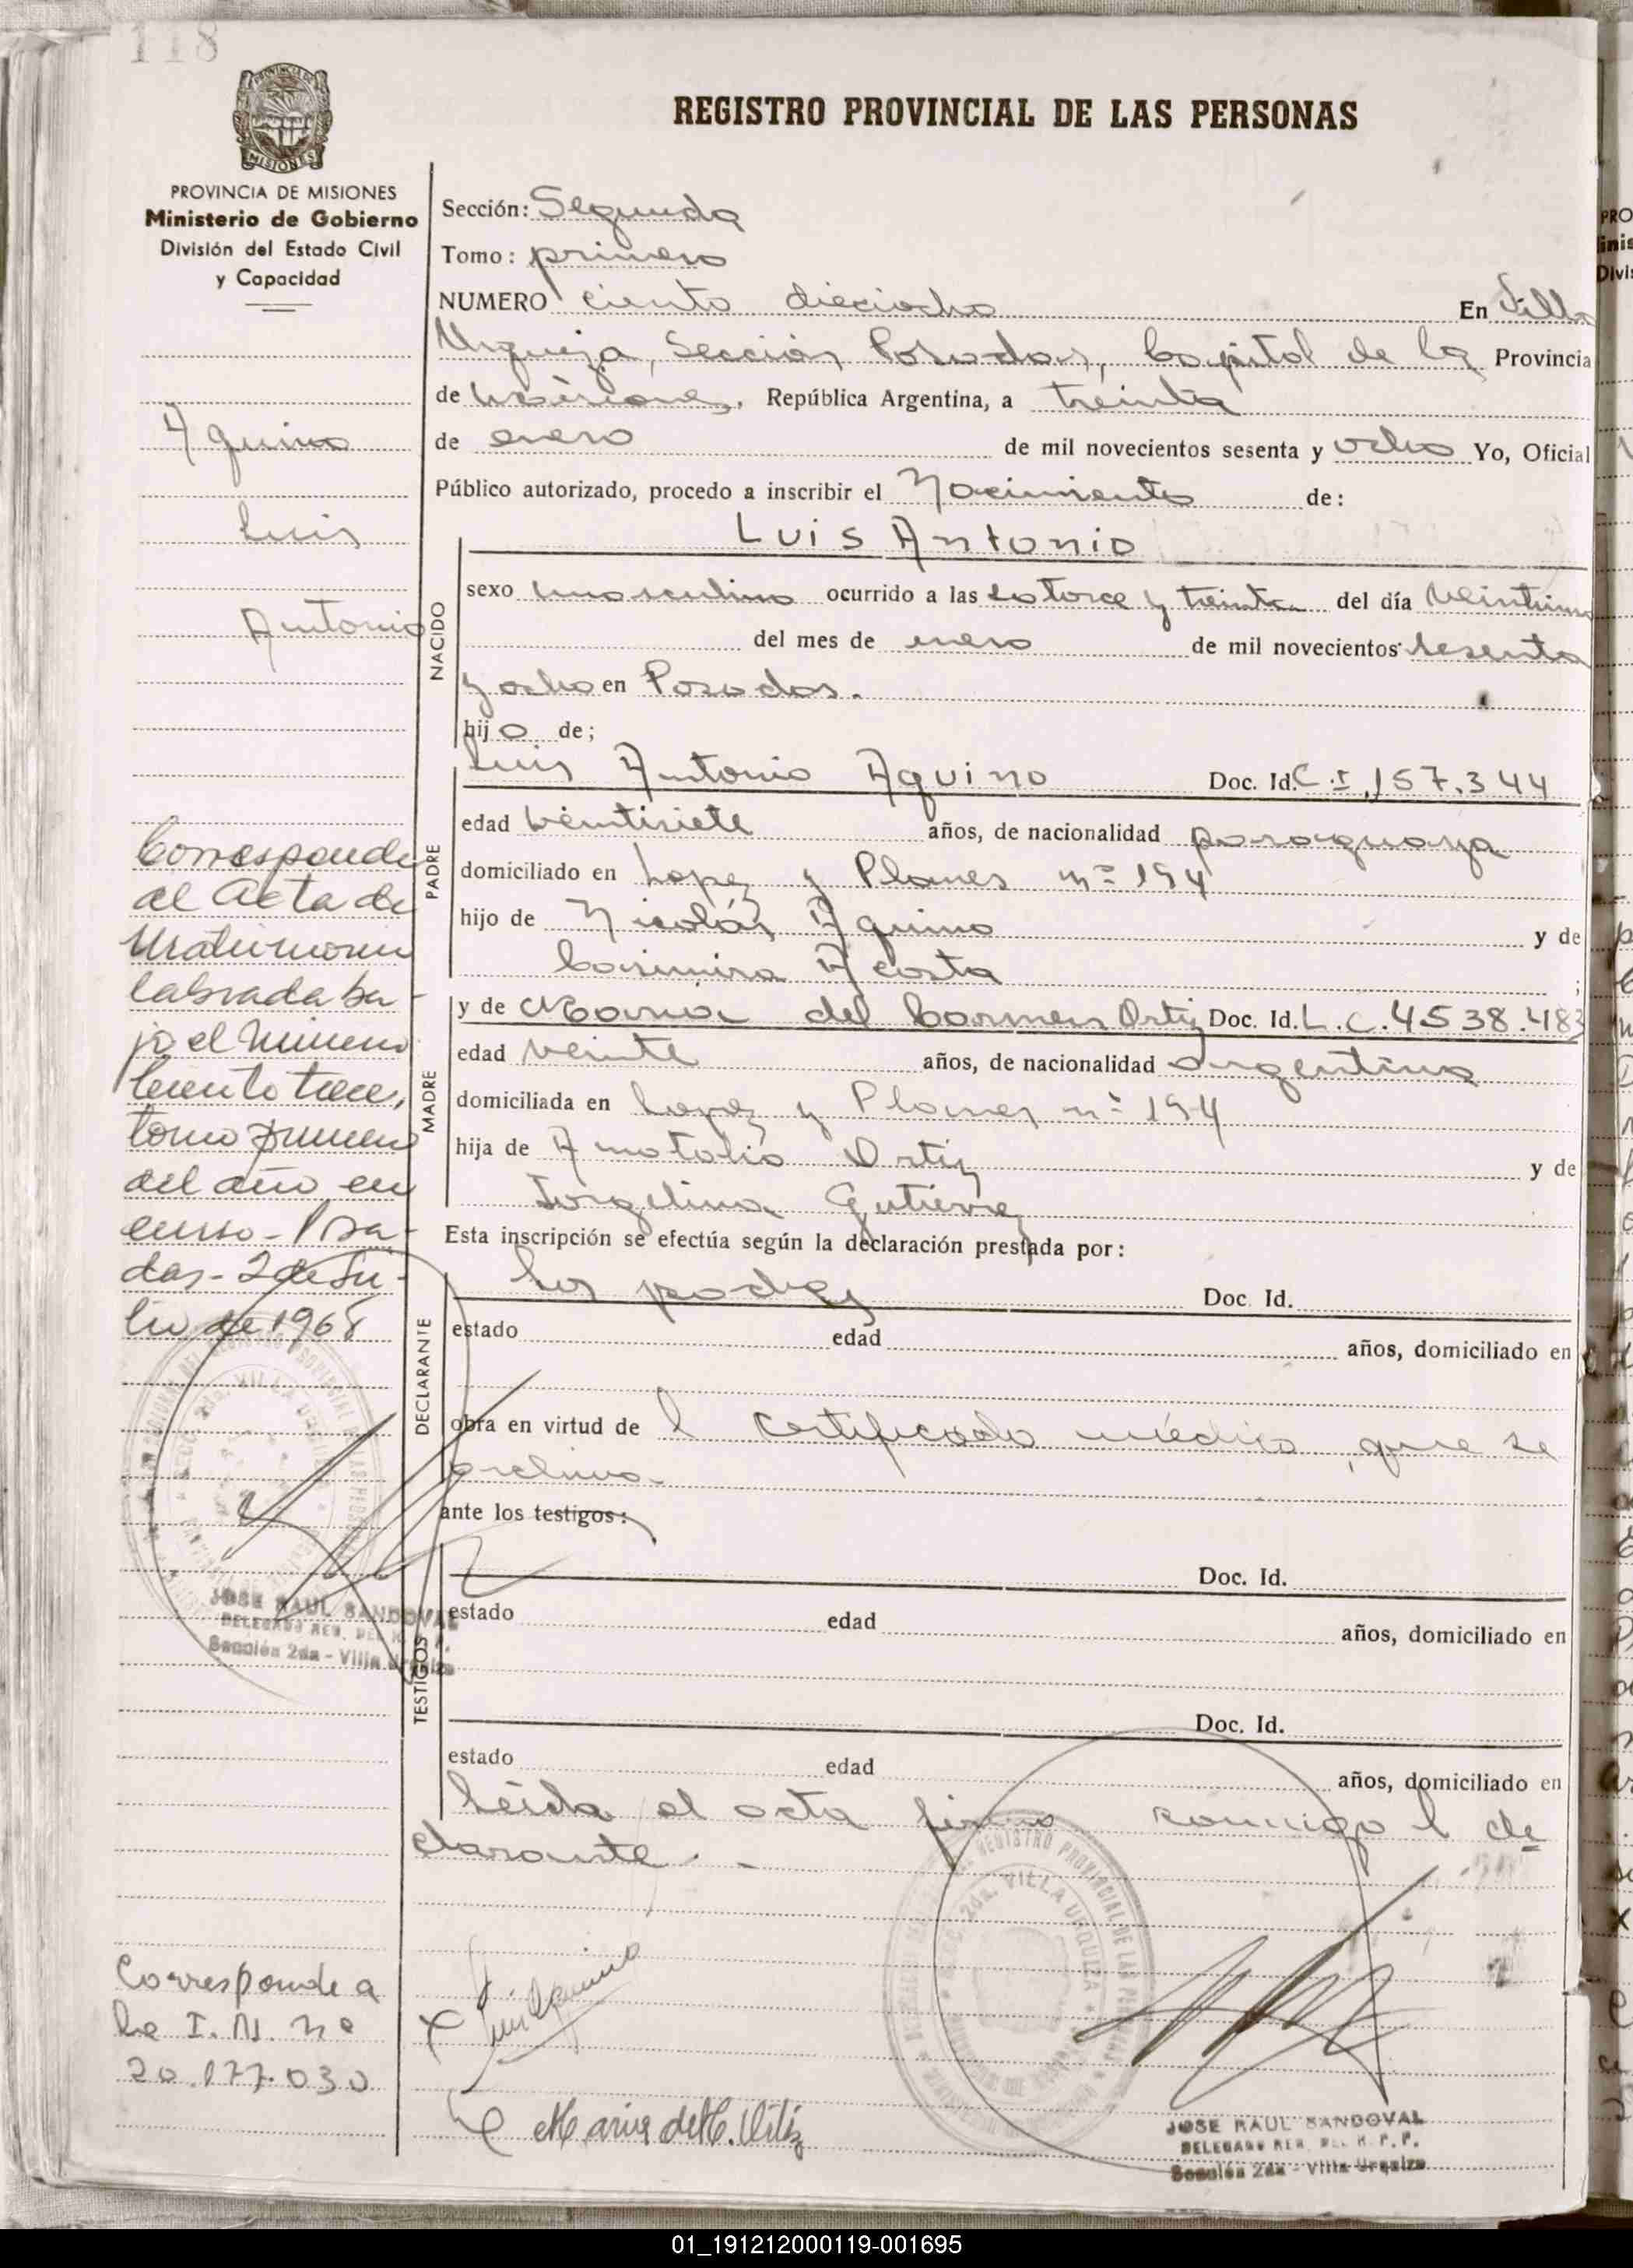 118
REGISTRO PROVINCIAL DE LAS PERSONAS
PROVINCIA DE MISIONES
MISIONES
PROVINCIA DE MISIONES
Ministerio de Gobierno
División del Estado Civil
y Capacidad
Aquino
Luis
Antonio
Corresponde
al Acta de
Matrimonio
labrada ba-
jo el Número
Ciento trece,
tomo primero
del año en
curso - Posa-
das - 2 de Ju-
lio de 1968
JOSE RAUL SANDOVAL
DELEGADO REG. DEL R. P. P.
Sección 2da - Villa Urquiza
Corresponde a
la I. N. nº
20.177.030
Sección: Segunda
Tomo: primero
NUMERO ciento dieciocho En Villa
Urquiza, Sección Posadas, Capital de la Provincia
de Misiones, República Argentina, a treinta
de enero de mil novecientos sesenta y ocho Yo, Oficial
Público autorizado, procedo a inscribir el Nacimiento de:
LUIS Antonio
NACIDO
sexo masculino ocurrido a las catorce y treinta del día veintiuno
del mes de enero de mil novecientos sesenta
y ocho en Posadas.
hijo de;
PADRE
Luis Antonio Aquino Doc. Id. C.I. 157.344
edad veintisiete años, de nacionalidad paraguaya
domiciliado en Lopez y Planes nº 194
hijo de Nicolás Aquino y de
Casimira Acosta ;
MADRE
y de María del Carmen Ortiz Doc. Id. L.C. 4538.483
edad veinte años, de nacionalidad argentina
domiciliada en Lopez y Planes nº 194
hija de Anatolio Ortiz y de
Jorgelina Gutierrez
Esta inscripción se efectúa según la declaración prestada por:
DECLARANTE
los padres Doc. Id.
estado edad años, domiciliado en
obra en virtud de l certificado médico que se
archiva.
ante los testigos:
TESTIGOS
Doc. Id.
estado edad años, domiciliado en
Doc. Id.
estado edad años, domiciliado en
Leída el acta firma conmigo l de
clarante. -
REGISTRO PROVINCIAL DE LAS PERSONAS
SECC. 2da. VILLA URQUIZA
Luis Aquino
María del C. Ortiz
JOSE RAUL SANDOVAL
DELEGADO REG. DEL R. P. P.
Sección 2da - Villa Urquiza
01_191212000119-001695